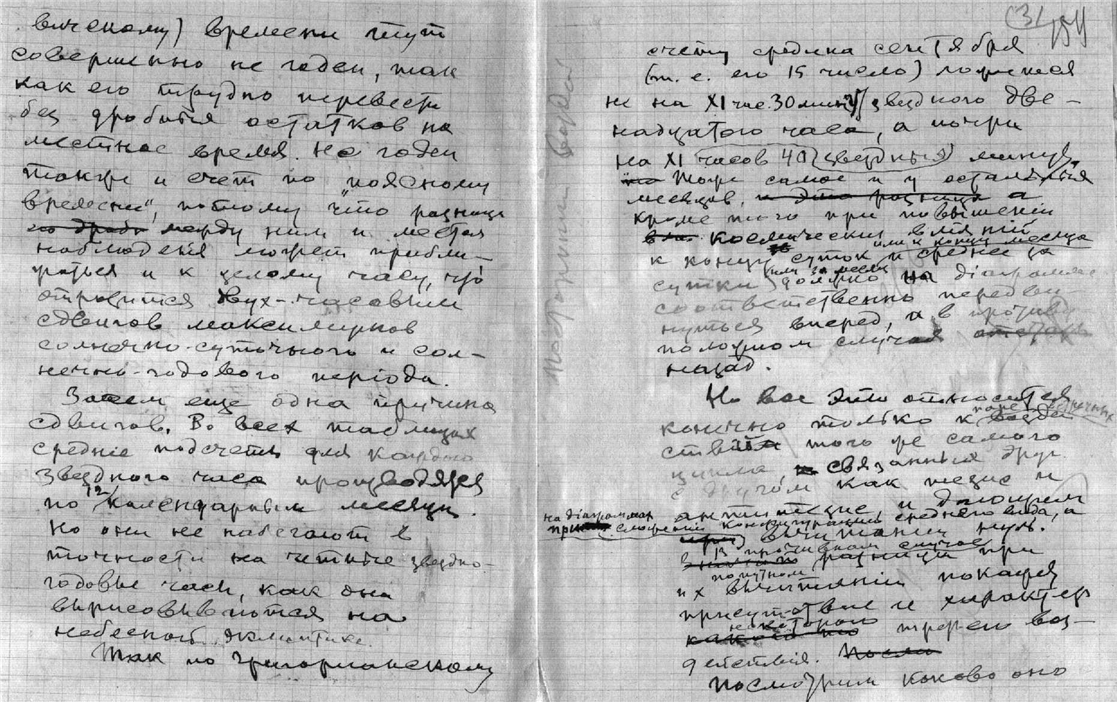 вическому) времени тут
совершенно не годен, так
как его трудно перевести
без дробных остатков на
местное время. Не годен
также и счет по „поясному
времени", потому что разница
между ним и местом
наблюдения может прибли-
жаться и к целому часу, что
отразится двух-часовым
сдвигом максимумов
солнечно-суточного и сол-
нечно-годового периода.
Затем еще одна причина
сдвигов. Во всех таблицах
средние подсчеты для каждого
звездного часа производятся
по 12 календарным месяцам.
Но они не набегают в
точности на звездно-
годовые часы, как они
вырисовываются на
небесной эклиптике.
Так по Григорианскому
счету средина сентября
(т. е. его 15 число) ложится
не на XI час. 30 минут звездного две-
надцатого часа, а почти
на XI часов 40 (звездных) минут.
Тоже самое и у остальных
месяцев, а
кроме того при повышении
космических влияний
к концу суток или к концу месяца и среднее за
сутки (или за месяц) должно на діаграмме
соответственно передви-
нуться вперед, а в противу-
положном случае
назад.
Но все это относится
конечно только к воздей-
ствию того же самого
цикла связанных друг
с другом как тезис и
антитезис, и дающим
на діаграммах конфигурацию среднего вида, а
при) вычитании нуль.
В противном случае разница при
их попутном вычитании покажет
присутствие и характер
некоторого третьего воз-
действия.
Посмотрим каково оно